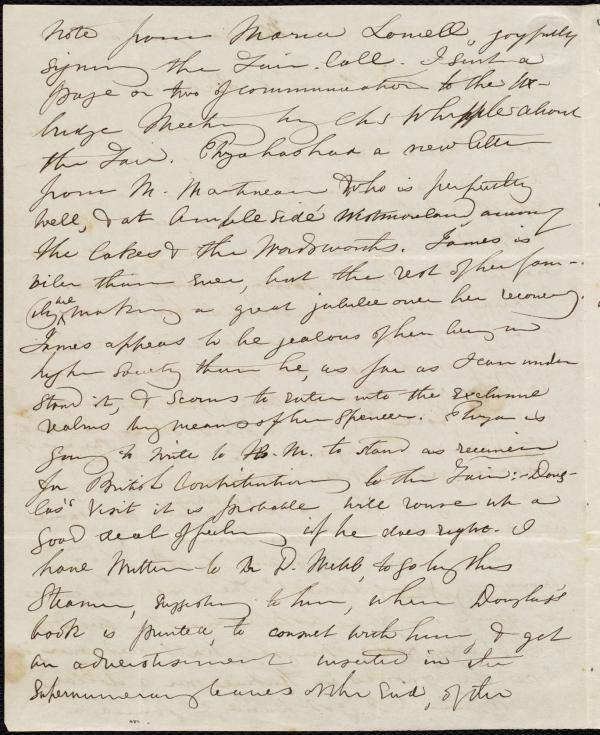 note from Maria Lowell, joyfully
signing the Fair. Call. I sent a
page or two of communication to the Ux-
bridge Meeting by Chs Whipple about
the Fair. Eliza has had a new letter
from M. Martineau who is perfectly
well, & at Ambleside Westmoreland, among
the lakes & the Wordsworths. James is
viler than ever, but the rest of her fam-
ily are making a great jubilee over her recovery.
James appears to be jealous of her being in
higher society than he, as far as I can under
stand it, & scorns to enter into the exclusive
realms by means of her Spencer. Eliza is
going to write to H. M. to stand as receiver
for British Contributions to the Fair:-Doug-
lass' visit it is probable will rouse up a
good deal of feeling if he does right. I
have written to R. D. Webb, to go by this
Steamer, suggesting to him, when Douglass's
book is printed, to consult with him, & get
an advertisement inserted in the
Supernumerary leaves at the End, of the